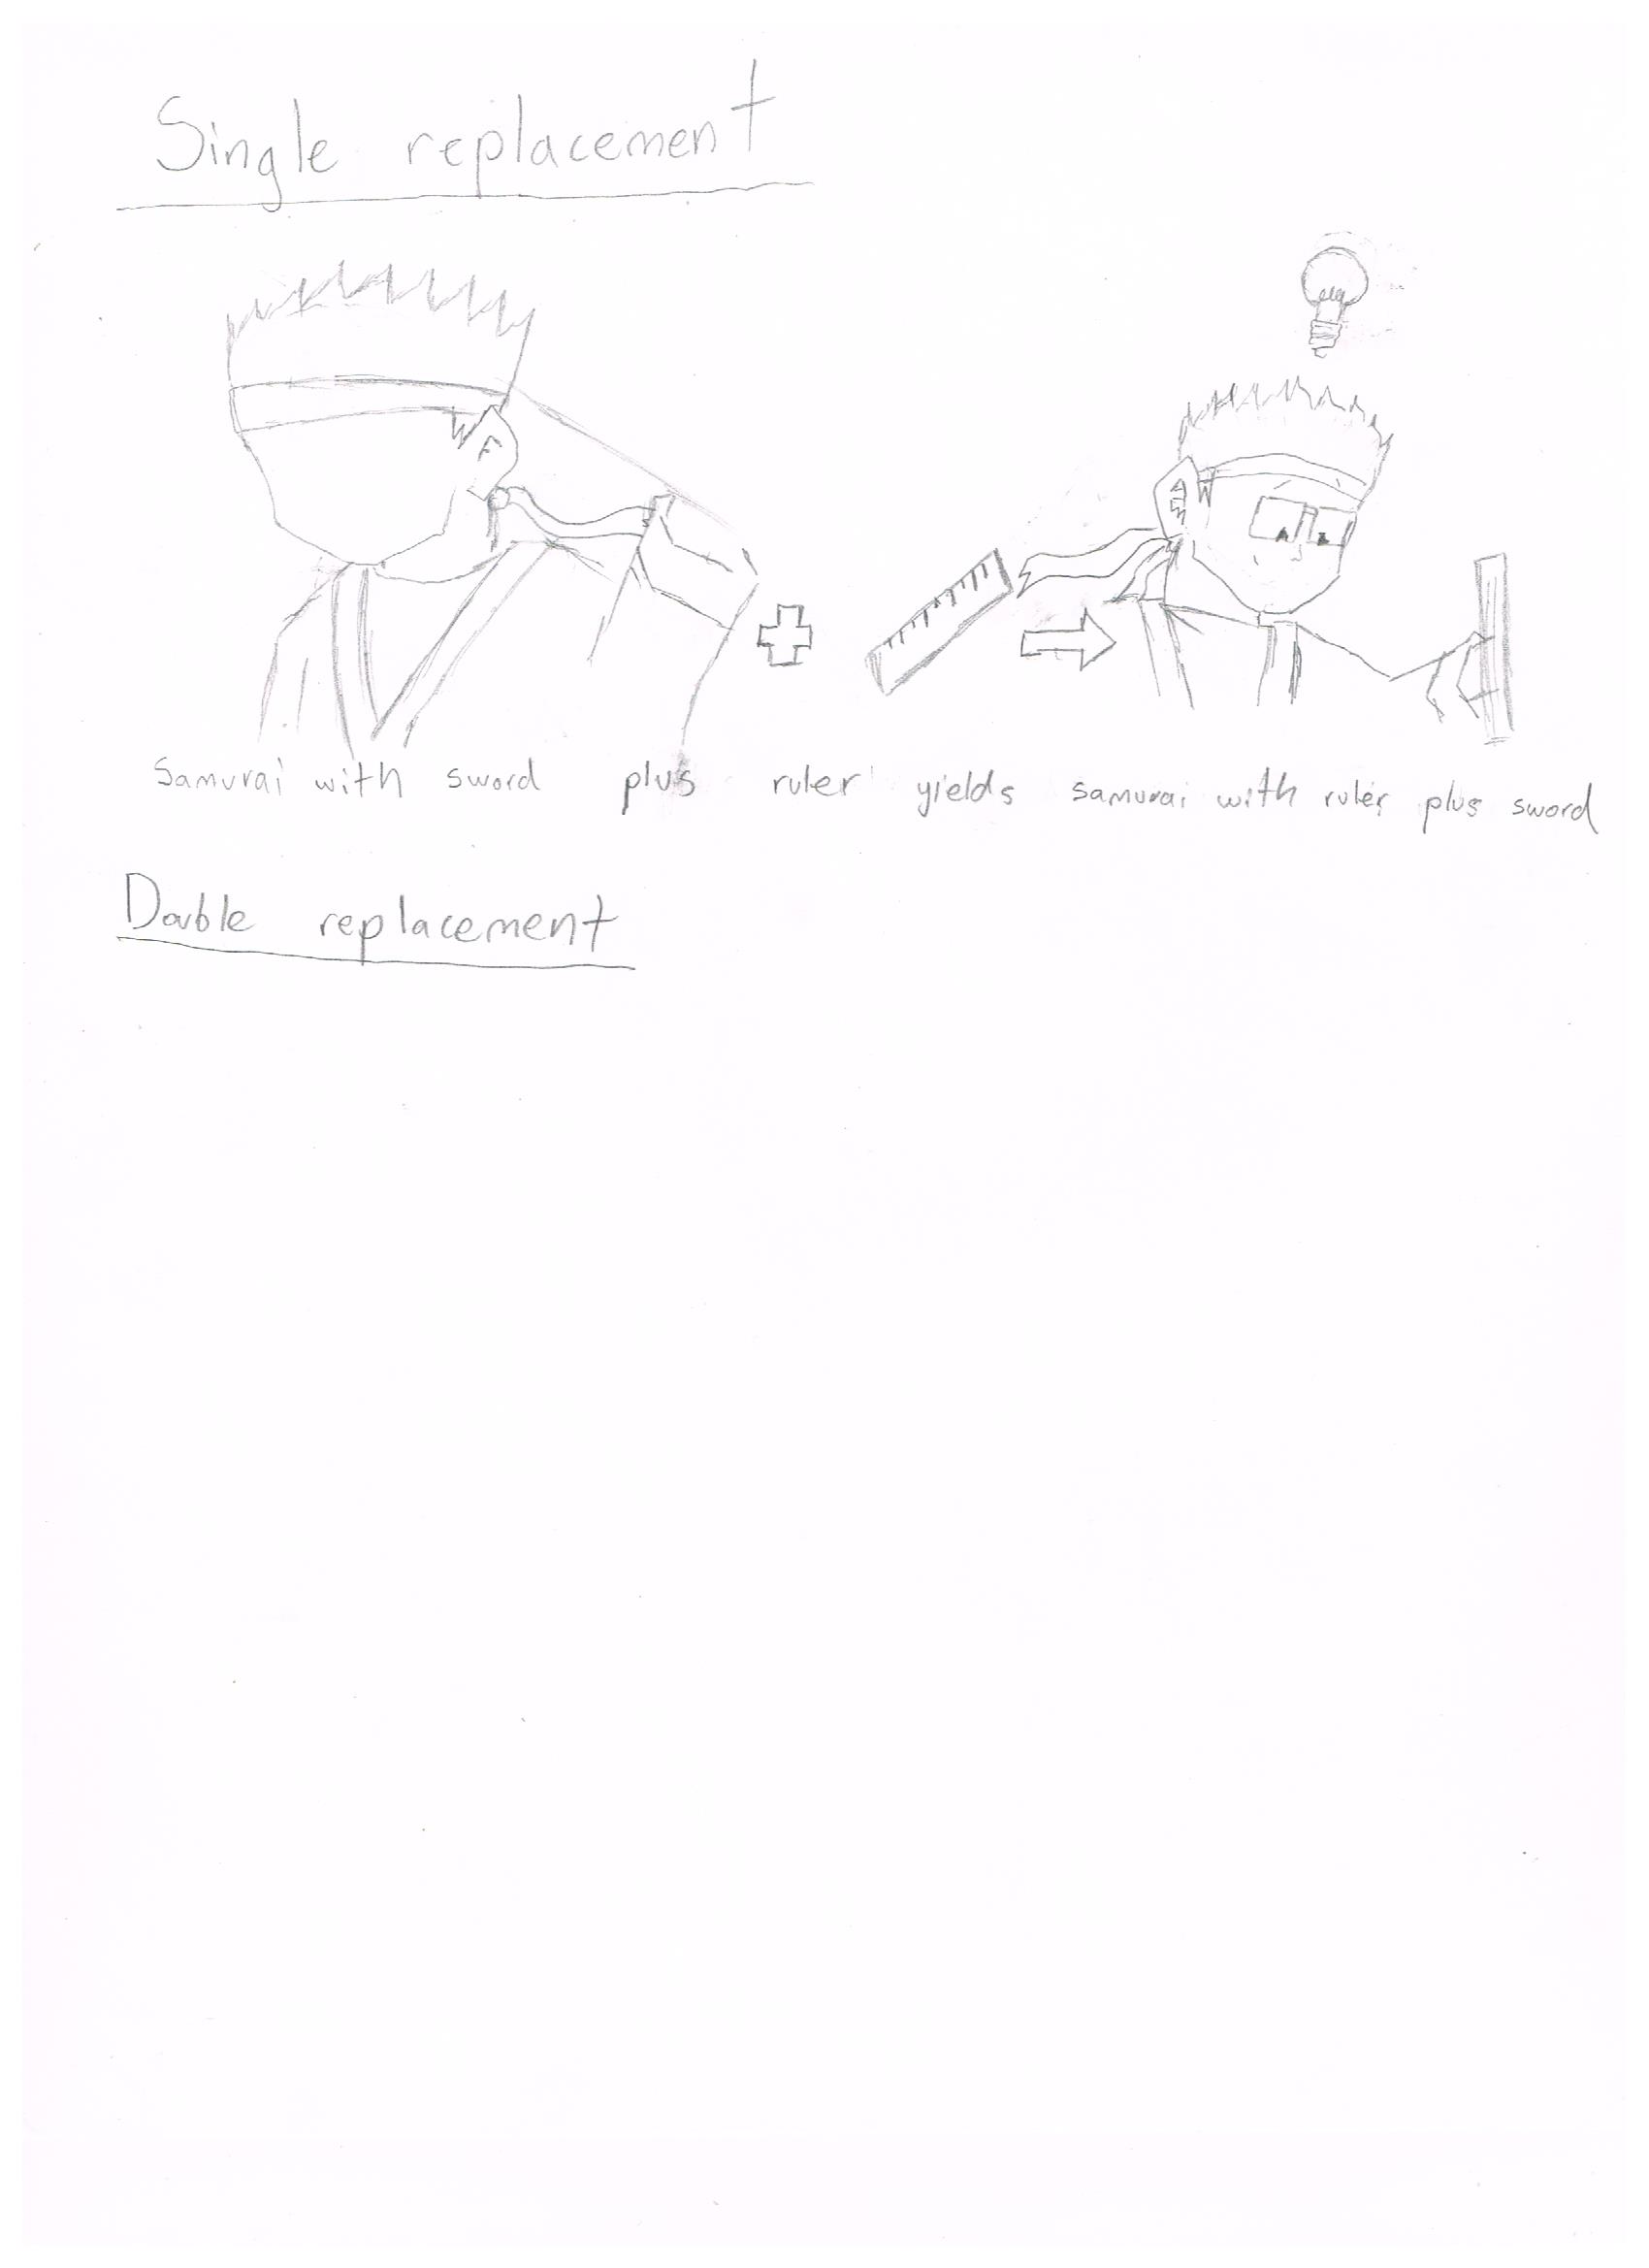 Single replacement
Samurai with sword plus ruler yields samurai with ruler plus sword
Double replacement